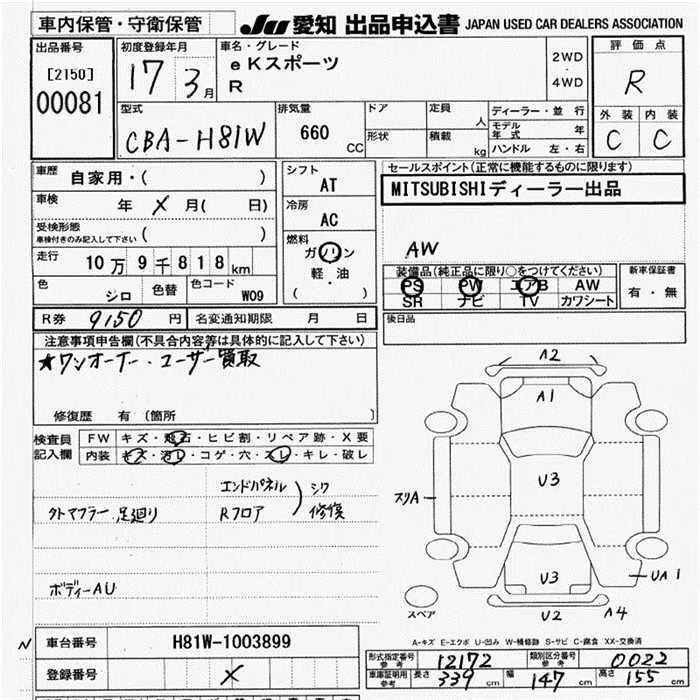 車内保管・守衛保管 JU 愛知 出品申込書 JAPAN USED CAR DEALERS ASSOCIATION
出品番号 [2150] 00081
初度登録年月 17 3月
車名・グレード eKスポーツ R
2WD・4WD
評価点 R
外装 内装
C C
型式 CBA-H81W
排気量 660 CC
ドア 形状
定員 人
積載 kg
ディーラー・並行
モデル年式 年
ハンドル 左・右
車歴 自家用・( )
車検 年 X 月( 日)
受検形態 車検付きのみ記入して下さい ( )
走行 10万9千818km
色 シロ 色替 色コード W09
シフト AT
冷房 AC
燃料 ガソリン 軽・油 ( )
セールスポイント(正常に機能するものに限ります)
MITSUBISHIディーラー出品
AW
装備品(純正品に限り○をつけてください)
PS PW エアB AW
SR ナビ TV カワシート
新車保証書 有・無
R券 9150 円 名変通知期限 月 日
後日品
注意事項申告欄(不具合内容等は具体的に記入して下さい)
★ワンオーナー・ユーザー買取
修復歴 有 〔箇所 〕
検査員記入欄
FW キズ・飛石・ヒビ割・リペア跡・X要
内装 キズ・汚レ・コゲ・穴・スレ・キレ・破レ
タトマフラー 足廻り
エンドパネル Rフロア ) シワ 修復
ボディーAU
A2
A1
U3
スリA
U3
UA1
U2 A4
スペア
A-キズ E-エクボ U-凹み W-補修跡 S-サビ C-腐食 XX-交換済
N 車台番号 H81W-1003899
登録番号 X
形式指定番号 参考 12172 類別区分番号 参考 0022
車庫証明用 参考 長さ 339cm 幅 147cm 高さ 155cm